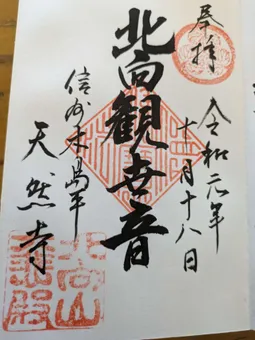 奉拝
令和元年
十一月十八日
北向観世音
信州木島平
天然寺
北向山